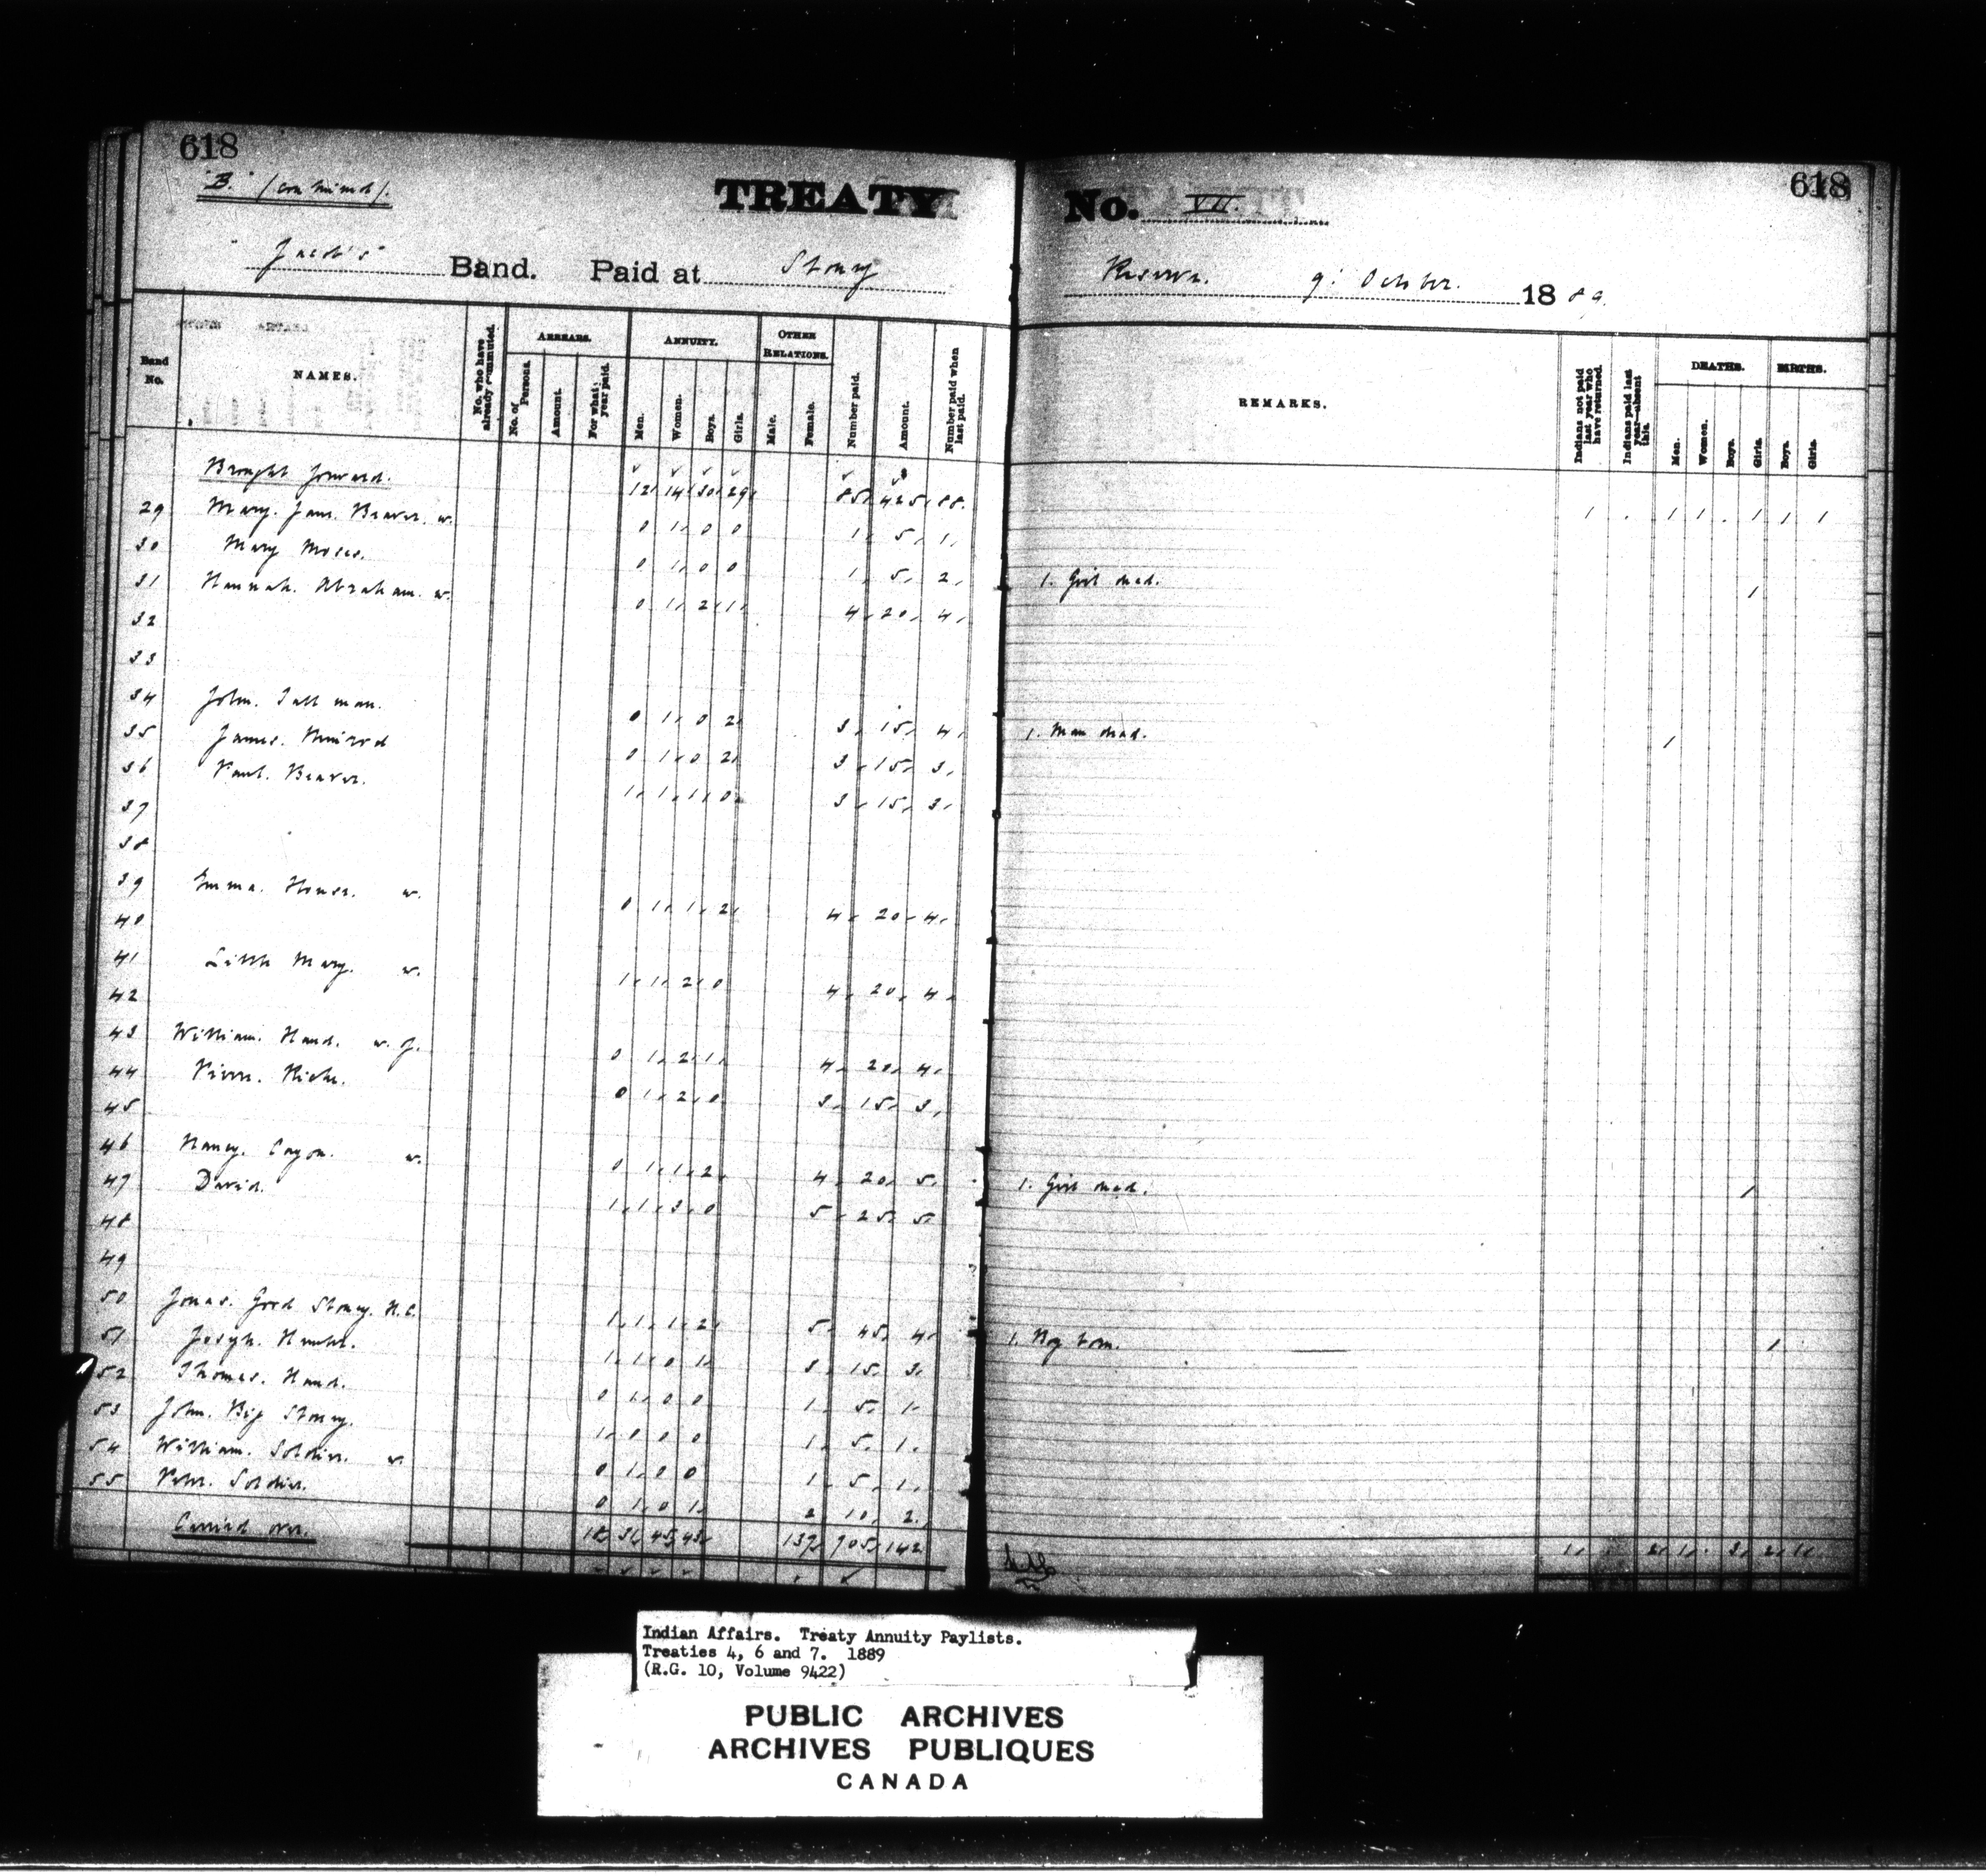 618
"B." (continued).
TREATY No. VII.
618
"Jacob's" Band. Paid at Stony Reserve. 9: October. 1889.
Band No.
NAMES.
No. who have already commuted.
ARREARS.
No. of Persons.
Amount.
For what year paid.
ANNUITY.
Men.
Women.
Boys.
Girls.
OTHER RELATIONS.
Male.
Female.
Number paid.
Amount.
Number paid when last paid.
REMARKS.
Indians not paid last year who have returned.
Indians paid last year—absent this.
DEATHS.
Men.
Women.
Boys.
Girls.
BIRTHS.
Boys.
Girls.
Brought forward. 12 14 30 29 85 425 88. 1 . 1 1 . 1 1 1
29 Mary. Jane. Beaver. w. 0 1 0 0 1 5 1
30 Mary Moses. 0 1 0 0 1 5 2 1. Girl dead. 1
31 Hannah. Abraham. w. 0 1 2 1 4 20 4
32
33
34 John. Tall man. 0 1 0 2 3 15 4 1. Man dead. 1
35 James. 0 1 0 2 3 15 3
36 Paul. Beaver. 1 1 1 0 3 15 3
37
38
39 Emma. House. w. 0 1 1 2 4 20 4
40
41 Little Mary. w. 1 1 2 0 4 20 4
42
43 William. Hand. w. J. 0 1 2 1 4 20 4
44 Pierre. 0 1 2 0 3 15 3
45
46 Nancy. w. 0 1 1 2 4 20 5 1. Girl dead. 1
47 David. 1 1 3 0 5 25 5
48
49
50 Jonas. Good Stoney. H.C. 1 1 1 2 5 45 4 1. Boy born. 1
51 Joseph. 1 1 0 1 3 15 3
52 Thomas. Hand. 0 1 0 0 1 5 1
53 John. Big Stoney. 1 0 0 0 1 5 1
54 William. Soldier. w. 0 1 0 0 1 5 1
55 Peter. Soldier. 0 1 0 1 2 10 2
Carried over. 18 31 45 43 137 705 142 1 2 1 . 3 2 1
Indian Affairs. Treaty Annuity Paylists.
Treaties 4, 6 and 7. 1889
(R.G. 10, Volume 9422)
PUBLIC ARCHIVES
ARCHIVES PUBLIQUES
CANADA